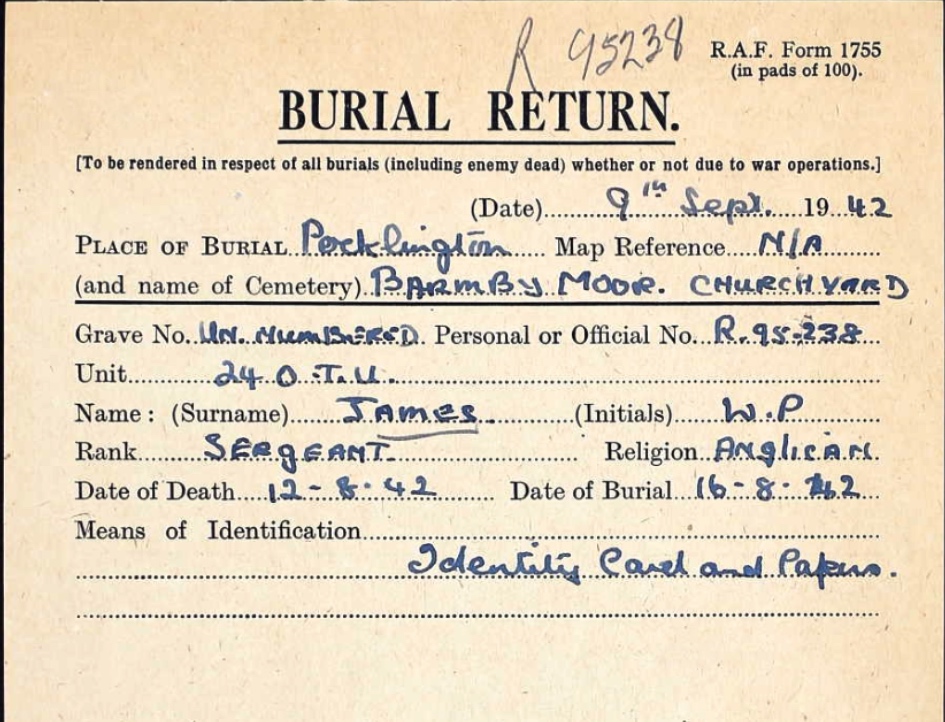 R 95238
R.A.F. Form 1755
(in pads of 100).
BURIAL RETURN.
[To be rendered in respect of all burials (including enemy dead) whether or not due to war operations.]
(Date) 9th Sept. 1942
PLACE OF BURIAL Pocklington Map Reference N/A
(and name of Cemetery) BARMBY MOOR. CHURCHYARD
Grave No. UN. NUMBERED. Personal or Official No. R.95238
Unit 24 O.T.U.
Name: (Surname) JAMES (Initials) W.P
Rank SERgEANT. Religion ANglICAN.
Date of Death 12-8-42 Date of Burial 16-8-42
Means of Identification
Identity Card and Papers.